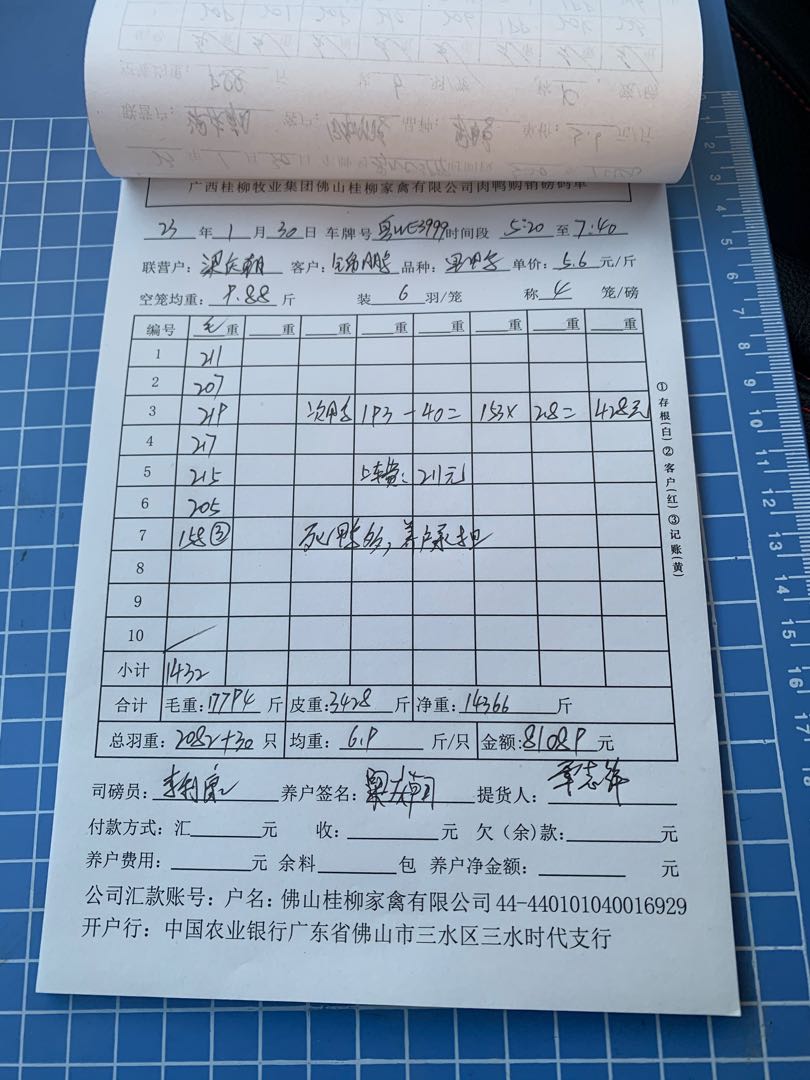 广西桂柳牧业集团佛山桂柳家禽有限公司肉鸭购销磅码单
23 年 1 月 30 日 车牌号 粤WE3999 时间段 5:20 至 7:40
联营户: 客户: 品种: 单价: 5.6 元/斤
空笼均重: 9.88 斤 装 6 羽/笼 称 4 笼/磅
编号 毛重 重 重 重 重 重 重 重
1 211
2 207
3 219 次鸭 193 - 40 = 153 × 2.8 = 428元
4 217
5 215 上车费: 211元
6 205
7 158 ③ 死鸭多, 养户承担
8
9
10
小计 1432
合计 毛重: 17794 斤 皮重: 3428 斤 净重: 14366 斤
总羽重: 2082+30 只 均重: 6.9 斤/只 金额: 81089 元
司磅员: 养户签名: 提货人: 覃志锋
付款方式: 汇 元 收: 元 欠(余)款: 元
养户费用: 元 余料 包 养户净金额: 元
公司汇款账号: 户名: 佛山桂柳家禽有限公司 44-440101040016929
开户行: 中国农业银行广东省佛山市三水区三水时代支行
①存根(白)②客户(红)③记账(黄)